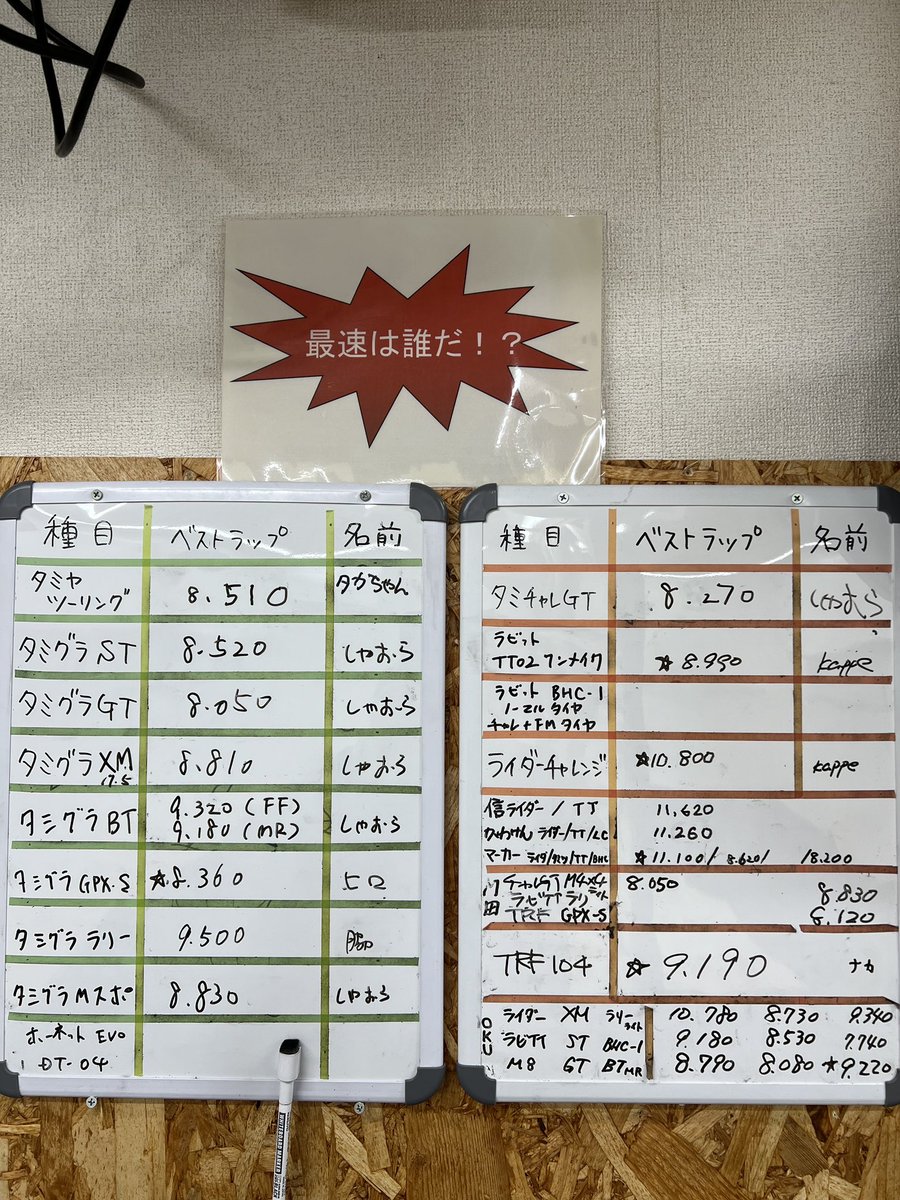 最速は誰だ！？
種目 ベストラップ 名前
タミヤ
ツーリング 8.510 タカちゃん
タミグラST 8.520 しゃおら
タミグラGT 8.050 しゃおら
タミグラXM 8.810 しゃおら
17.5
タミグラBT 9.320 (FF)
9.180 (MR) しゃおら
タミグラGPX-S ☆8.360 ヒロ
タミグラ ラリー 9.500 脇
タミグラMスポ 8.830 しゃおら
ホーネット EVO
DT-04
種目 ベストラップ 名前
タミチャレGT 8.270 しゃおら
ラビット
TT02 ワンメイク ☆8.990 kappe
ラビット BHC-1
ノーマルタイヤ
チャレ+FMタイヤ
ライダーチャレンジ ☆10.800 kappe
信ライダー/TT 11.620
ライダー/TT/LC 11.260
マーカー /TT/BHC ☆11.100/ 8.620/ /8.200
8.050
8.830
TRF GPX-S 8.120
TRF 104 ☆9.190 ナカ
OKU
ライダー XM ラリーライト 10.780 8.730 9.340
ラビTT ST BHC-1 9.180 8.530 7.740
M8 GT BTMR 8.790 8.080 ☆9.220
WHITEBOARD MARKER